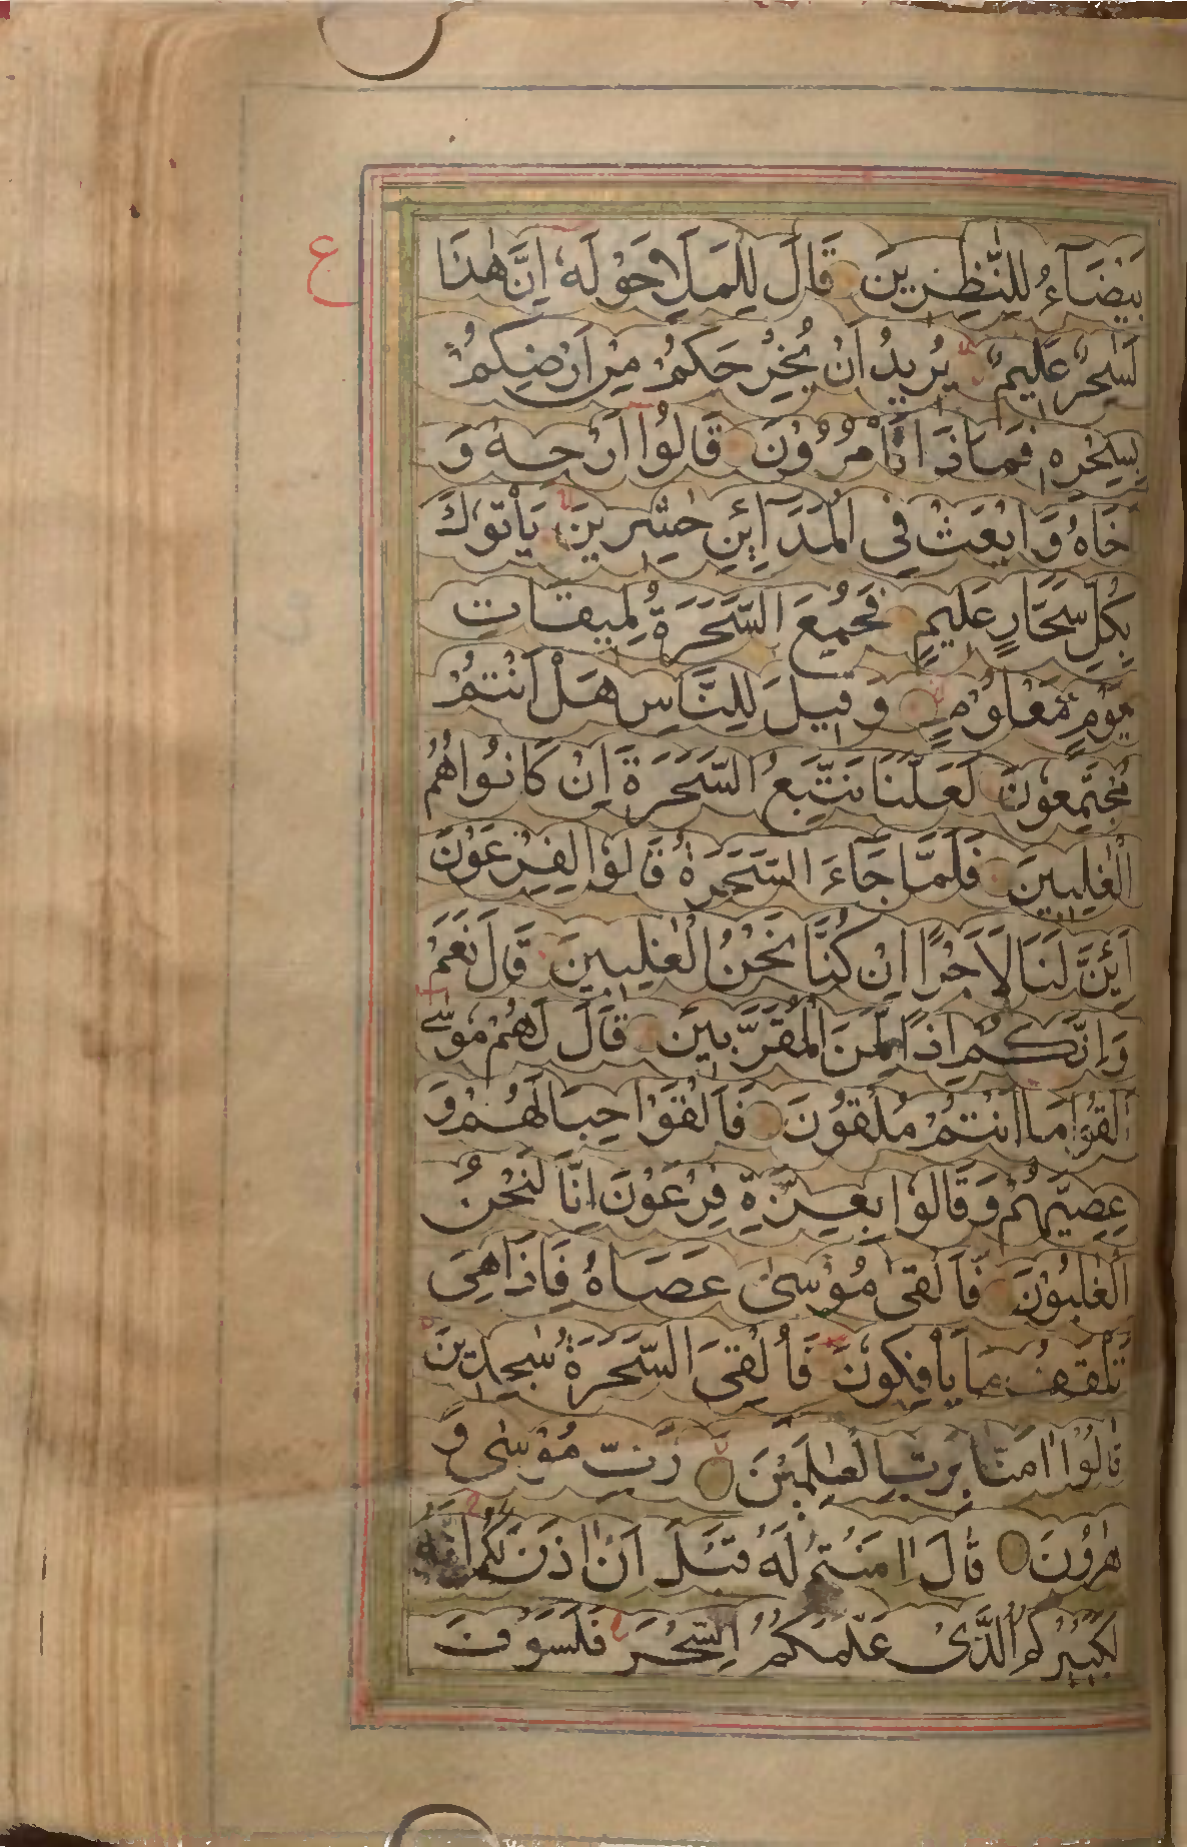 ع
بَيْضَآءُ لِلنّٰظِرِيْنَ قَالَ لِلْمَلَاِ حَوْلَهٗ اِنَّ هٰذَا
لَسٰحِرٌ عَلِيْمٌ يُرِيْدُ اَنْ يُّخْرِجَكُمْ مِنْ اَرْضِكُمْ
بِسِحْرِهٖ فَمَاذَا تَاْمُرُوْنَ قَالُوْا اَرْجِهْ وَ
خَاهُ وَابْعَثْ فِى الْمَدَآئِنِ حٰشِرِيْنَ يَاْتُوْكَ
بِكُلِّ سَحَّارٍ عَلِيْمٍ فَجُمِعَ السَّحَرَةُ لِمِيْقَاتِ
يَوْمٍ مَّعْلُوْمٍ وَقِيْلَ لِلنَّاسِ هَلْ اَنْتُمْ
مُّجْتَمِعُوْنَ لَعَلَّنَا نَتَّبِعُ السَّحَرَةَ اِنْ كَانُوْا هُمُ
الْغٰلِبِيْنَ فَلَمَّا جَآءَ السَّحَرَةُ قَالُوْا لِفِرْعَوْنَ
اَئِنَّ لَنَا لَاَجْرًا اِنْ كُنَّا نَحْنُ الْغٰلِبِيْنَ قَالَ نَعَمْ
وَاِنَّكُمْ اِذًا لَّمِنَ الْمُقَرَّبِيْنَ قَالَ لَهُمْ مُوْسٰى
اَلْقُوْا مَا اَنْتُمْ مُلْقُوْنَ فَاَلْقَوْا حِبَالَهُمْ وَ
عِصِيَّهُمْ وَقَالُوْا بِعِزَّةِ فِرْعَوْنَ اِنَّا لَنَحْنُ
الْغٰلِبُوْنَ فَاَلْقٰى مُوْسٰى عَصَاهُ فَاِذَا هِىَ
تَلْقَفُ مَا يَاْفِكُوْنَ فَاُلْقِىَ السَّحَرَةُ سٰجِدِيْنَ
قَالُوْا اٰمَنَّا بِرَبِّ الْعٰلَمِيْنَ رَبِّ مُوْسٰى وَ
هٰرُوْنَ قَالَ اٰمَنْتُمْ لَهٗ قَبْلَ اَنْ اٰذَنَ لَكُمْ اِنَّهٗ
لَكَبِيْرُكُمُ الَّذِىْ عَلَّمَكُمُ السِّحْرَ فَلَسَوْفَ